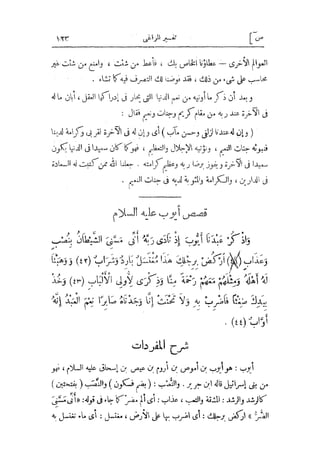 ص] تفسير المراغى ١٢٣
العوالم الأخرى — عطاؤنا الخاص بك ، فأعط من شئت ، وامنع من شئت غير
محاسب على شىء من ذلك ، فقد فوضت لك التصرف فيه كما تشاء .
وبعد أن ذكر ما أوتيه من نعم الدنيا التى يحار فى إدراكها العقل ، أبان ما له
فى الآخرة عند ربه من مقام كريم وجنات ونعيم فقال :
( وإن له عندنا لزلفى وحسن مآب ) أى وإن له فى الآخرة لقربى وكرامة لدينا
فنبوئه جنات النعيم ، ونؤتيه الإجلال والتعظيم ، فهو كما كان سعيدا فى الدنيا يكون
سعيدا فى الآخرة ويفوز برضا ربه وعظيم كرامته . جعلنا الله ممن كتبت له السعادة
فى الدارين ، والكرامة والمثوبة لديه فى جنات النعيم .
قصص أيوب عليه السلام
وَاذْكُرْ عَبْدَنَا أَيُّوبَ إِذْ نَادَى رَبَّهُ أَنِّى مَسَّنِىَ الشَّيْطَانُ بِنُصْبٍ
وَعَذَابٍ (٤١) ارْكُضْ بِرِجْلِكَ هَذَا مُغْتَسَلٌ بَارِدٌ وَشَرَابٌ (٤٢) وَوَهَبْنَا
لَهُ أَهْلَهُ وَمِثْلَهُمْ مَعَهُمْ رَحْمَةً مِنَّا وَذِكْرَى لِأُولِى الْأَلْبَابِ (٤٣) وَخُذْ
بِيَدِكَ ضِغْثًا فَاضْرِبْ بِهِ وَلَا تَحْنَثْ إِنَّا وَجَدْنَاهُ صَابِرًا نِعْمَ الْعَبْدُ إِنَّهُ
أَوَّابٌ (٤٤) .
شرح المفردات
أيوب : هو أيوب بن أموص بن أروم بن عيص بن إسحاق عليه السلام ، فهو
من بنى إسرائيل قاله ابن جرير . والنُّصْب : ( بضم فسكون ) والنَّصَب ( بفتحتين )
كالرشد والرشد : المشقة والتعب ، عذاب : أى ألم مضر كما جاء فى قوله : « أَنِّى مَسَّنِىَ
الضُّرُّ » اركض برجلك : أى اضرب بها على الأرض ، مغتسل : أى ماء تغتسل به